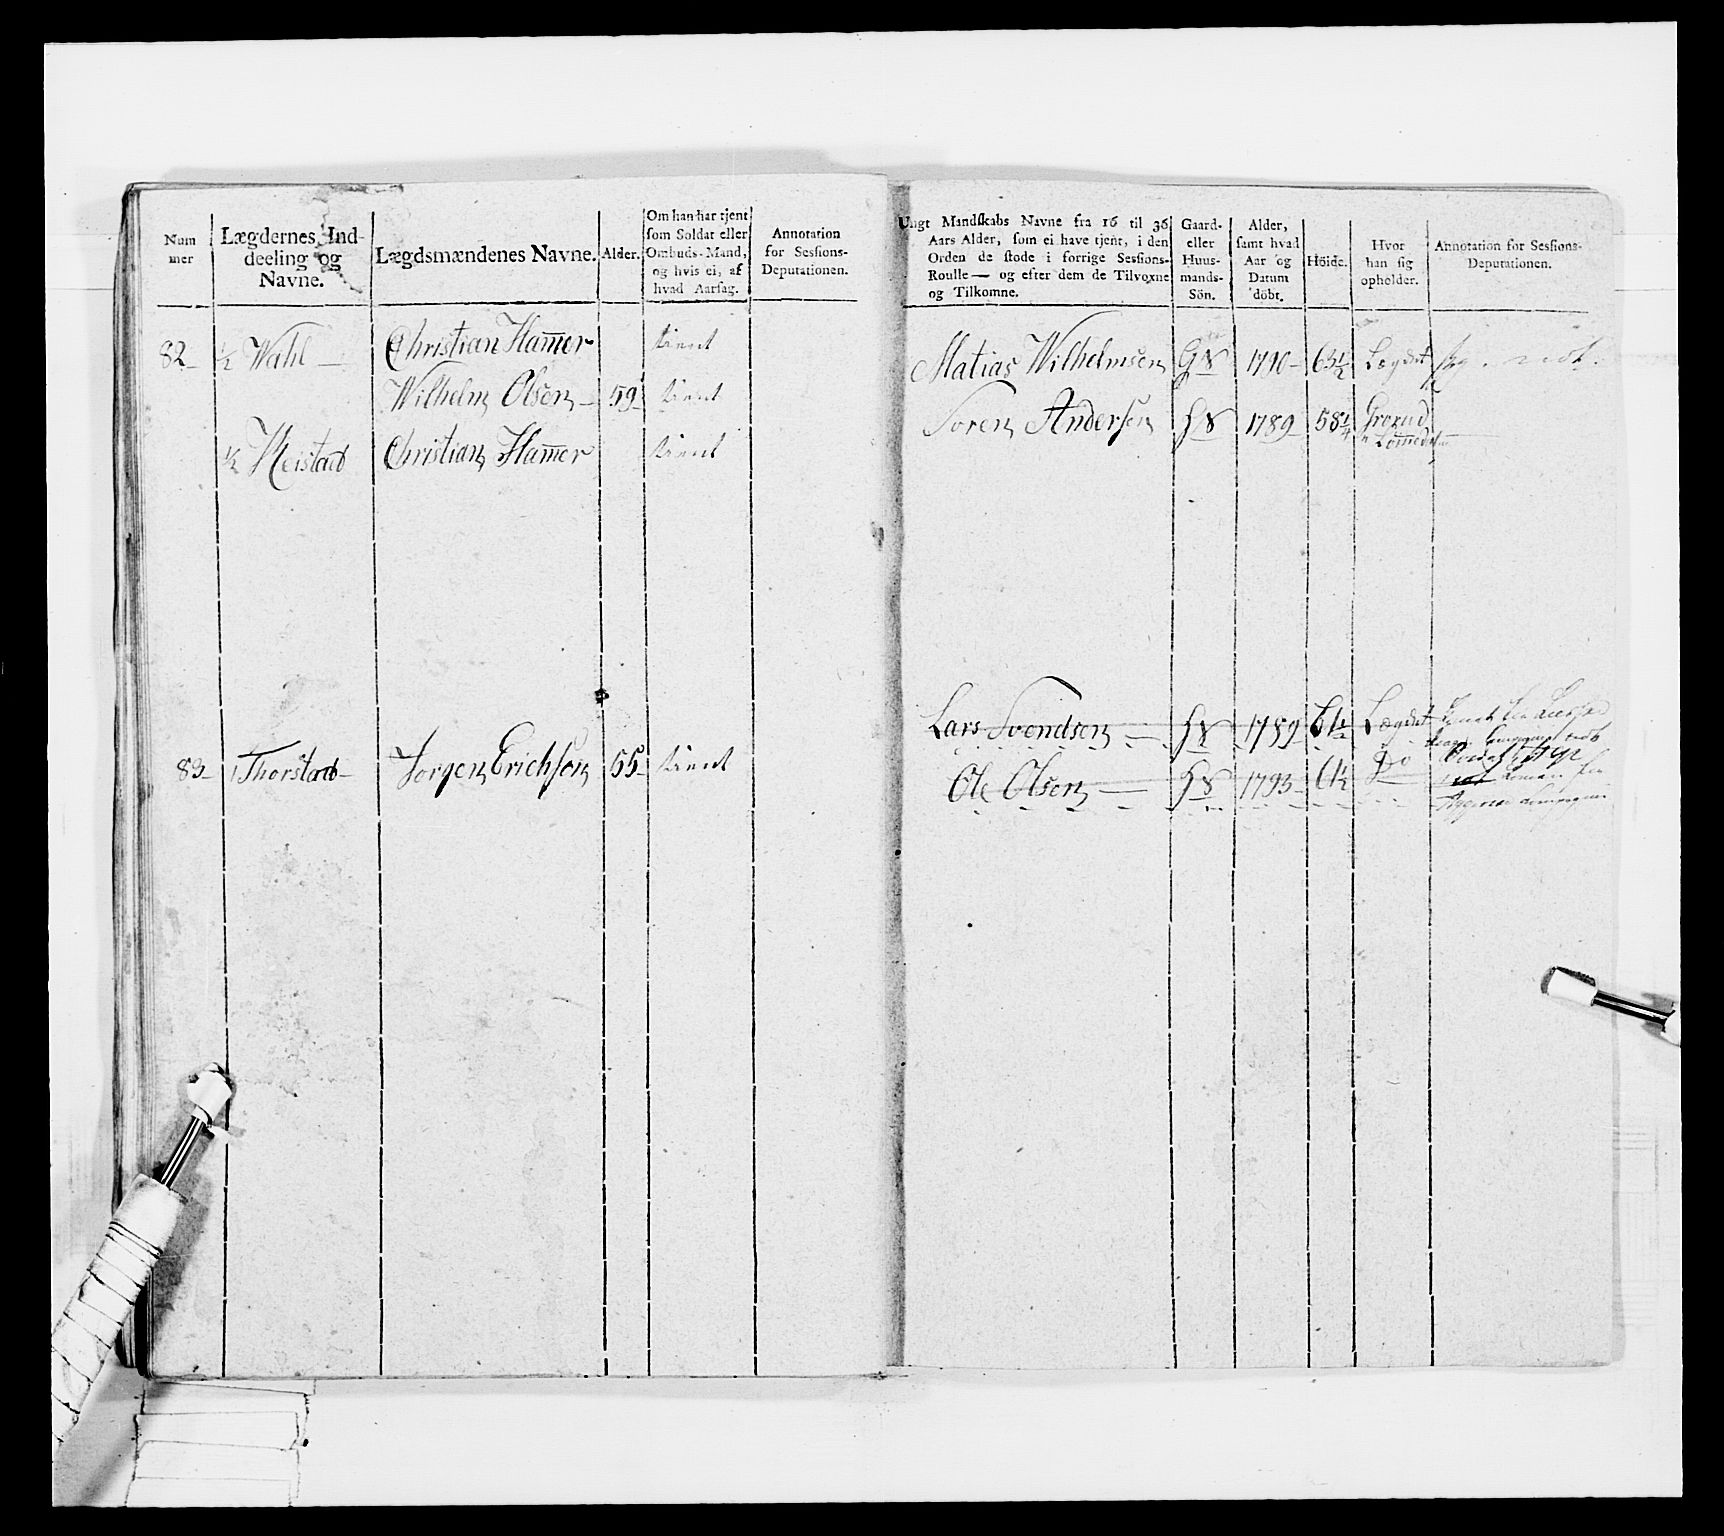 Num
mer
Lægdernes Ind-
deeling og
Navne.
Lægdsmændenes Navne.
Alder.
Om han har tjent
som Soldat eller
Ombuds-Mand,
og hvis ei, af
hvad Aarsag.
Annotation
for Sessions-
Deputationen.
82 ½ Wahl Christian Ham̅er tient
Wilhelm Olsen 59 tient
½ Meistad Christian Ham̅er tient
83 1 Thorstad Jørgen Erichsen 55 tient
Ungt Mandskabs Navne fra 16 til 36
Aars Alder, som ei have tjent, i den
Orden de stode i forrige Sessions-
Roulle — og efter dem de Tilvoxne
og Tilkomne.
Gaard-
eller
Huus-
mands-
Sön.
Alder,
samt hvad
Aar og
Datum
döbt.
Höide.
Hvor
han sig
opholder.
Annotation for Sessions-
Deputationen.
Matias Wilhelmsen GS 1790 63½ Lægdet
Soren Andersen HS 1789 58¼ Grorud
Lars Svendsen HS 1789 61½ Lægdet
Ole Olsen HS 1793 61½ Do